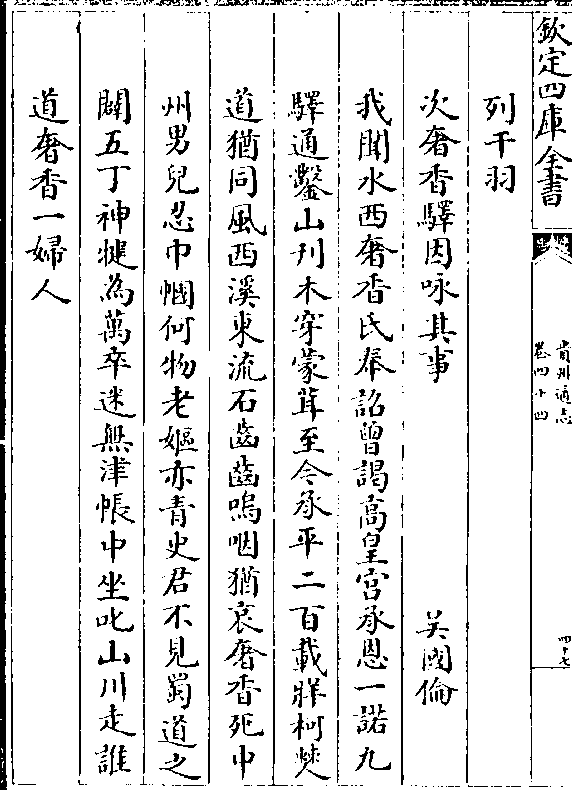 欽定四庫全書
貴州通志
卷四十四
四十七
列干羽
次奢香驛因咏其事
吴國倫
我聞水西奢香氏奉詔曾謁高皇宫承恩一諾九
驛通鑿山刋木穿蒙茸至今承平二百載牂柯僰
道猶同風西溪東流石齒齒嗚咽猶哀奢香死中
州男兒忍巾幗何物老嫗亦青史君不見蜀道之
闢五丁神犍為萬卒迷無津帳中坐叱山川走誰
道奢香一婦人